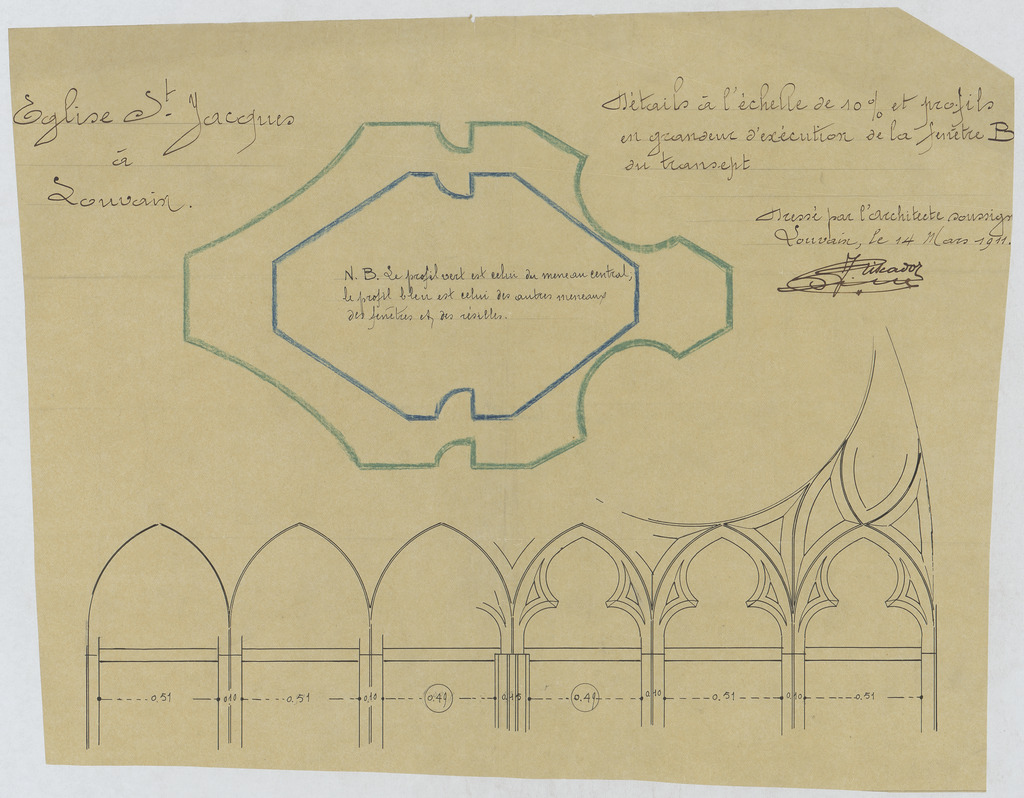 Eglise St Jacques
à
Louvain.
Détails à l'échelle de 10% et profils
en grandeur d'exécution de la fenêtre B
du transept
Dressé par l'architecte soussign
Louvain, le 14 Mars 1911.
N. B. Le profil vert est celui du meneau central,
le profil bleu est celui des autres meneaux
des fenêtres et des résilles.
0.51 0.10 0.51 0.10 0.49 0.15 0.49 0.10 0.51 0.10 0.51